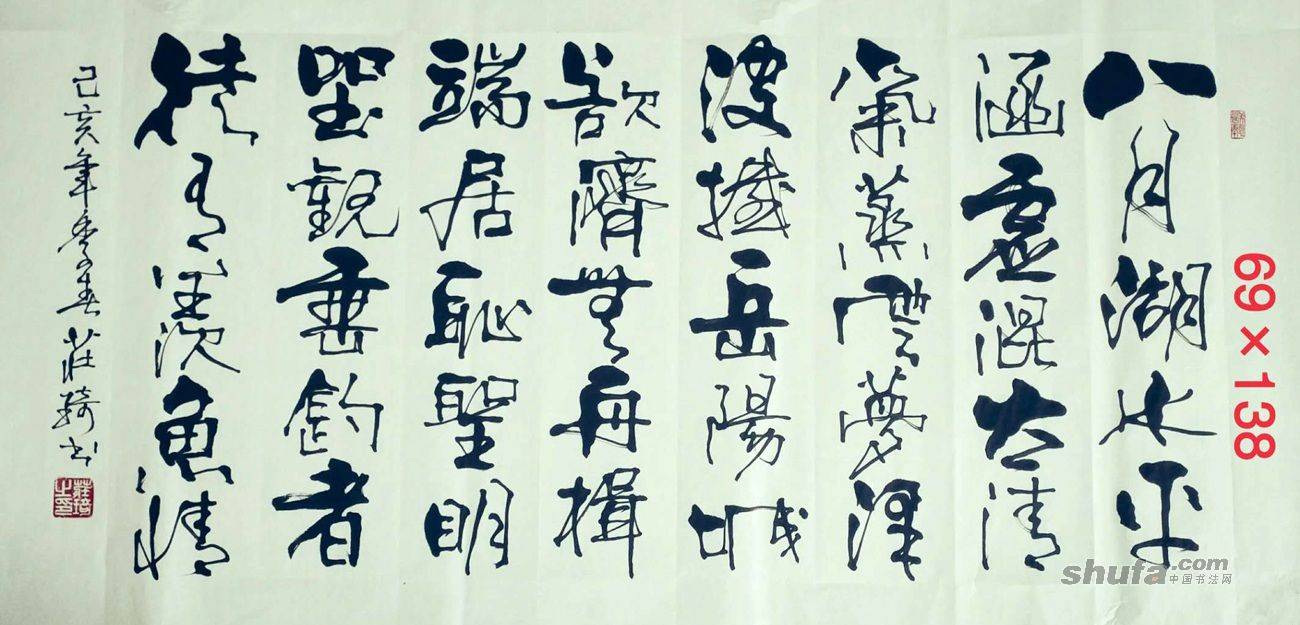 八月湖水平
涵虛混太清
氣蒸雲夢澤
波撼岳陽城
欲濟無舟楫
端居耻聖明
坐觀垂釣者
徒有羨魚情
己亥年季春莊琦书
69×138
shufa.com
中国书法网